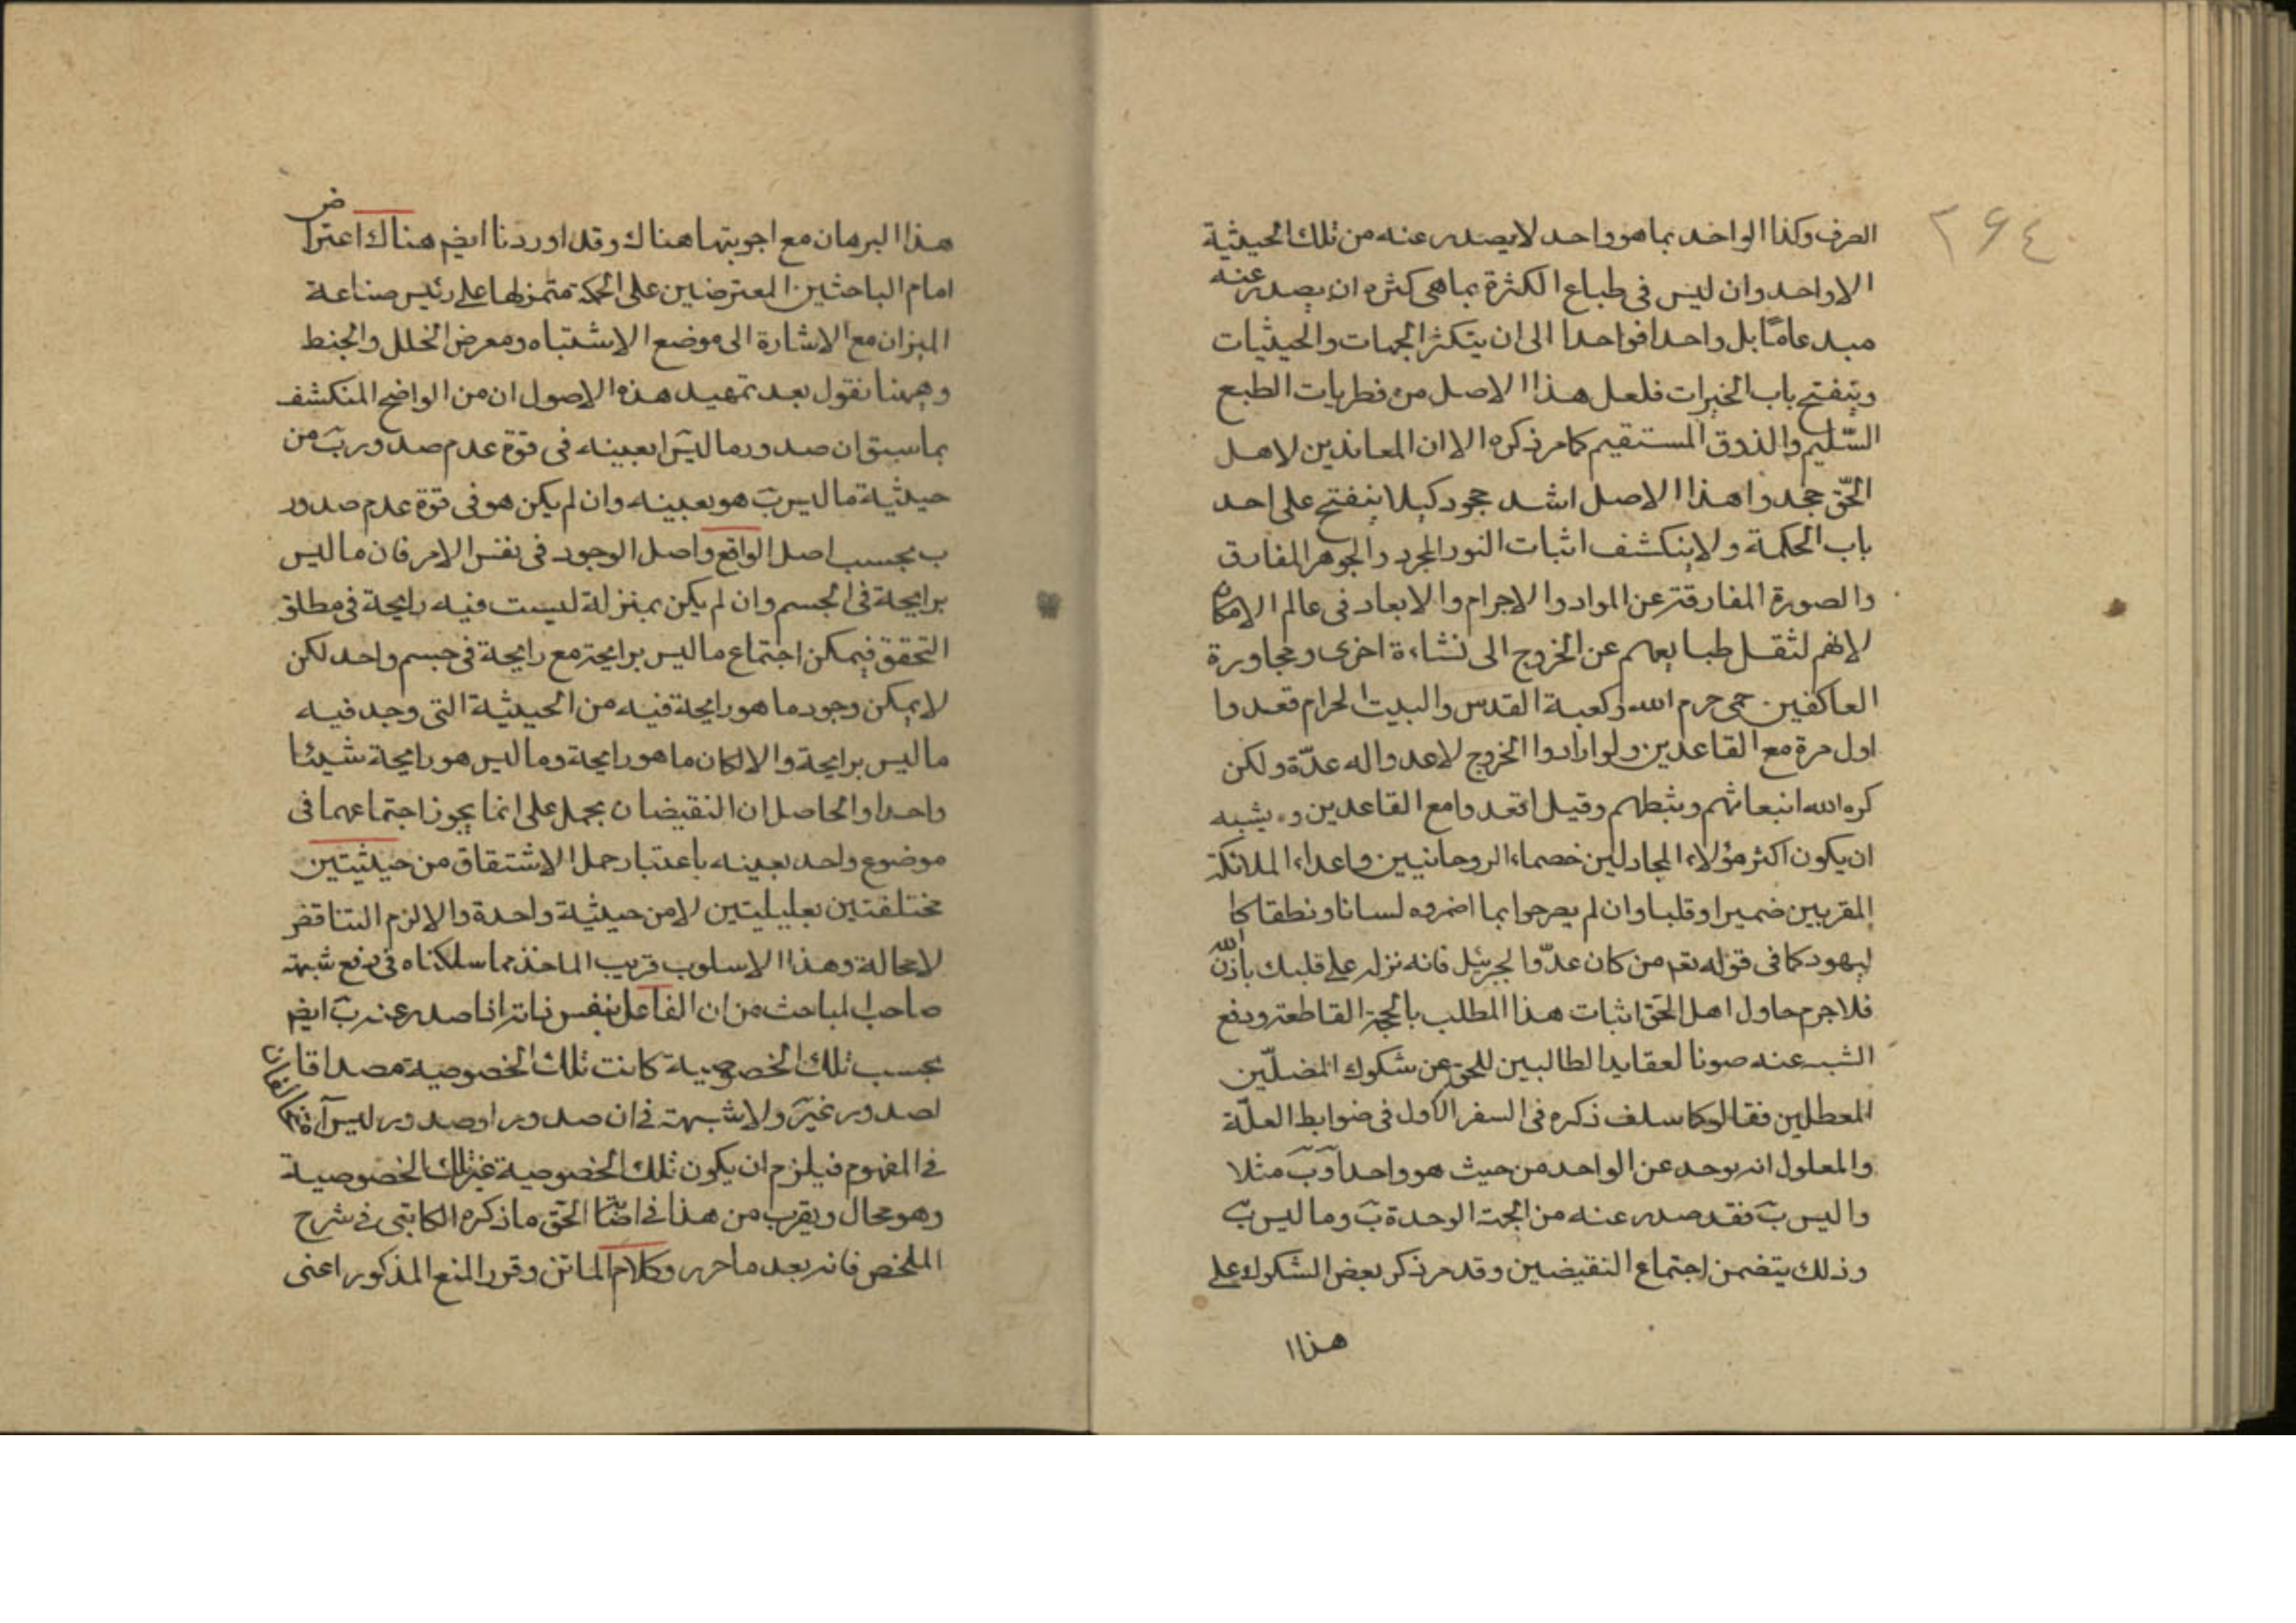 ٢٦٤
الصرف وكذا الواحد بما هو واحد لا يصدر عنه من تلك الحيثية
الا واحد وان ليس في طباع الكثرة بما هي كثرة ان يصدر عنه
بل واحدا فواحدا الى ان يتكثر الجهات والحيثيات
وينفتح باب الخيرات فلعل هذا الاصل من فطريات الطبع
السّليم والذوق المستقيم كما مر ذكره الا ان المعاندين لاهل
الحّق جحدوا هذا الاصل اشد جحود كيلا ينفتح على احد
باب الحكمة ولا ينكشف اثبات النور المجرد والجوهر المفارق
والصورة المفارقة عن المواد والاجرام والابعاد في عالم الامكان
لانهم لثقل طبايعهم عن الخروج الى نشاءة اخرى ومجاورة
العاكفين حمى حرم الله وكعبة القدس والبيت الحرام قعدوا
اول مرة مع القاعدين ولو ارادوا الخروج لاعدوا له عدّة ولكن
كره الله انبعاثهم وثبطهم وقيل اقعدوا مع القاعدين ويشبه
ان يكون اكثر هؤلاء المجادلين خصماء الروحانيين واعداء الملائكة
المقربين ضميرا وقلبا وان لم يصرحوا بما اضمروه لسانا ونطقا كا
ليهود كما في قوله تعم من كان عدّوا لجبرئيل فانه نزله على قلبك باذن الله
فلا جرم حاول اهل الحّق اثبات هذا المطلب بالحجة القاطعة ودفع
الشبه عنه صونا لعقايد الطالبين للحق عن شكوك المضلّين
المعطلين فقالوا كما سلف ذكره في السفر الاول في ضوابط العلّة
والمعلول انه يوجد عن الواحد من حيث هو واحد آ وبَ مثلا
وا ليس بَ فقد صدر عنه من الجهة الوحدة بَ وما ليس بَ
وذلك يتضمن اجتماع النقيضين وقد مر ذكر بعض الشكوك على
هذا ا
هذا البرهان مع اجوبتها هناك وقد اوردنا ايضم هناك اعتراض
امام الباحثين المعترضين على الحكمة على رئيس صناعة
الميزان مع الاشارة الى موضع الاشتباه ومعرض الخلل والخبط
وههنا نقول بعد تمهيد هذه الاصول ان من الواضح المنكشف
بما سبق ان صدور ما ليس ا بعينه في قوة عدم صدور بَ من
حيثية ما ليس بَ هو بعينه وان لم يكن هو في قوة عدم صدور
ب بحسب اصل الواقع واصل الوجود في نفس الامر فان ما ليس
برايحة في الجسم وان لم يكن بمنزلة ليست فيه رايحة في مطلق
التحقق فيمكن اجتماع ما ليس برايحة مع رايحة في جسم واحد لكن
لا يمكن وجود ما هو رايحة فيه من الحيثية التى وجد فيه
ما ليس برايحة والا لكان ما هو رايحة وما ليس هو رايحة شيئا
واحدا والحاصل ان النقيضان يحمل على انما يجوز اجتماعهما في
موضوع واحد بعينه باعتبار حمل الاشتقاق من حيثيتين
مختلفتين تعليليتين لا من حيثية واحدة والا لزم التناقض
لا محالة وهذا الاسلوب قريب الماخذ مما سلكناه في دفع شبهة
صاحب المباحث من ان الفاعل بنفس ذاته اذا صدر عنه بَ ايضم
بحسب تلك الخصوصية كانت تلك الخصوصية مصداقا
لصدور غيره ولا شبهة في ان صدور ا وصدور ليس آ
في المفهوم فيلزم ان يكون تلك الخصوصية غير تلك الخصوصية
وهو محال ويقرب من هذا في الحّق ما ذكره الكاتبى في شرح
الملخص فانه بعد ما حرر وكلام الماتن وقرر المنع المذكور اعنى